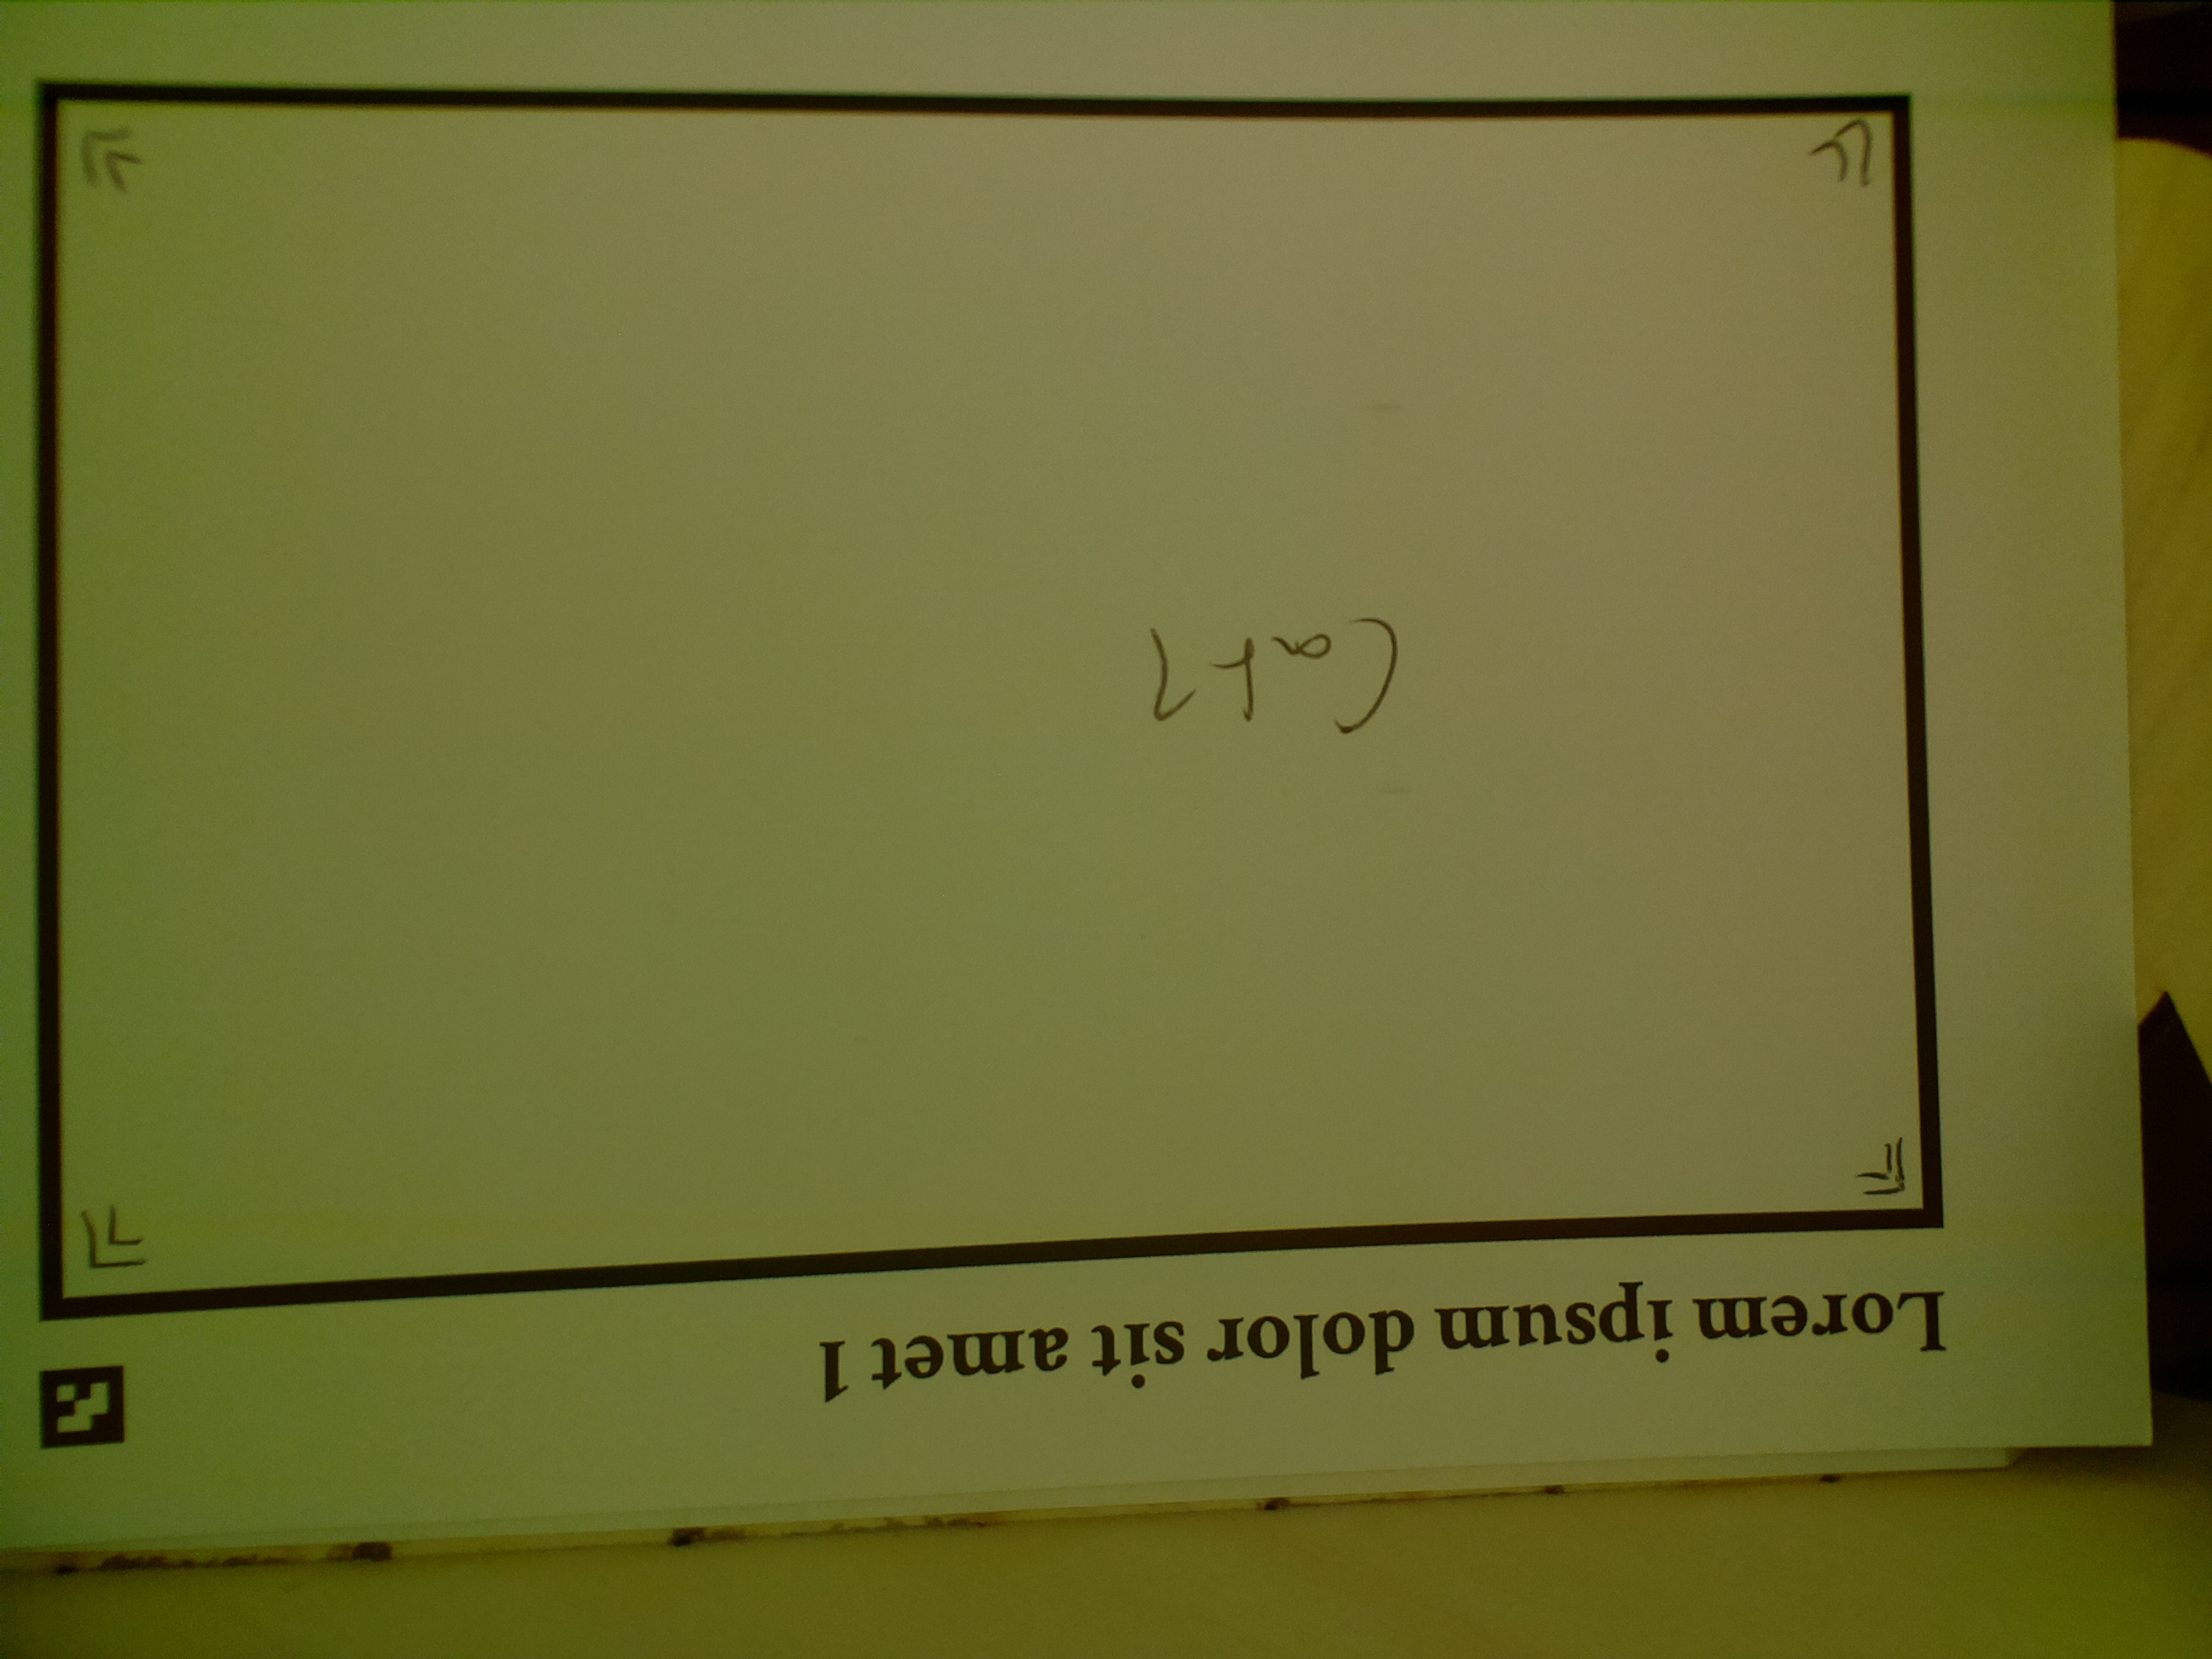 Lorem ipsum dolor sit amet 1
Cat 1